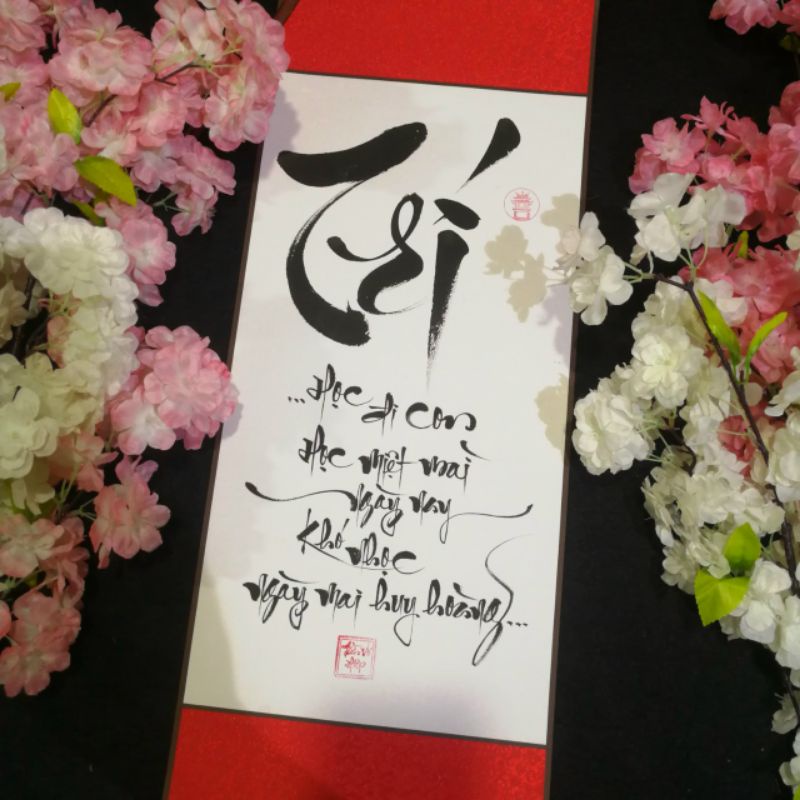 Trí
...Học đi con
Học miệt mài
ngày nay
Khó nhọc
ngày mai huy hoàng...